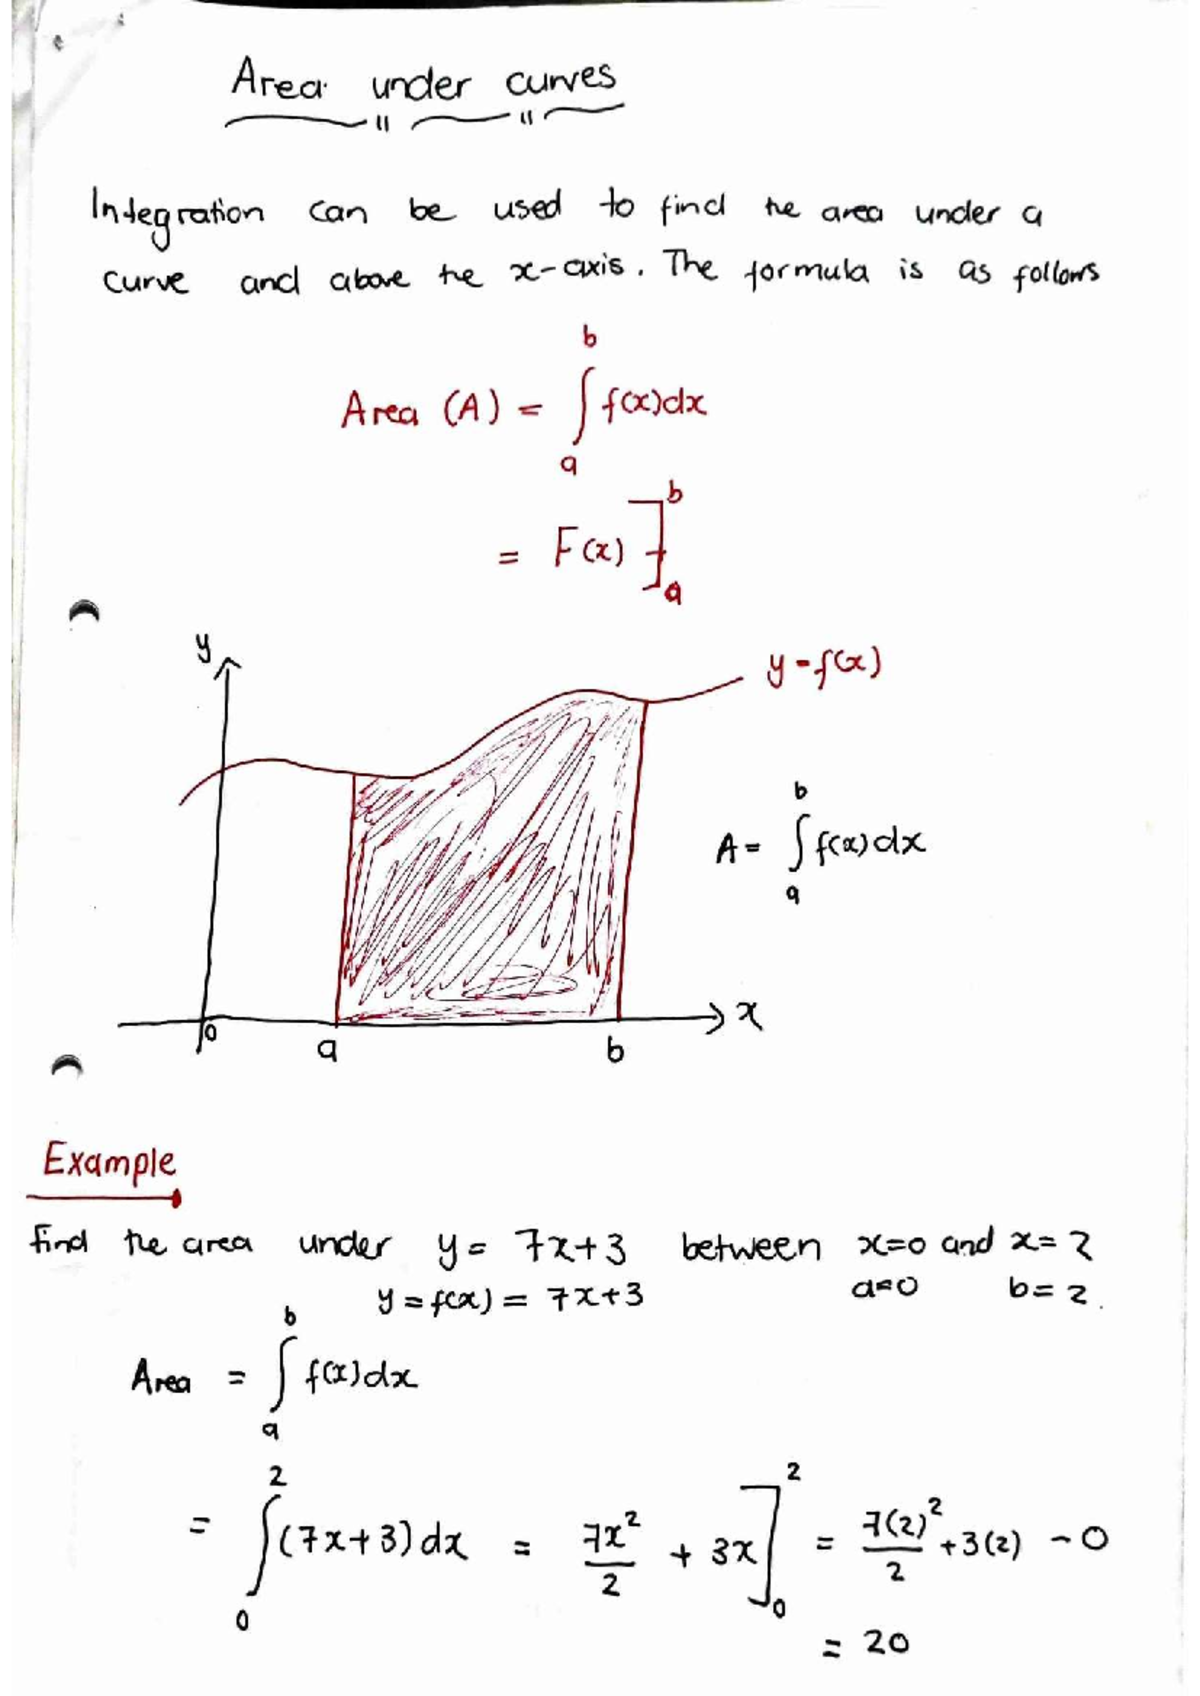 Area under curves
Integration can be used to find the area under a
curve and above the x-axis. The formula is as follows
Area (A) = ∫_a^b f(x)dx
= F(x)]_a^b
y
y = f(x)
A = ∫_a^b f(x)dx
0 a b x
Example
find the area under y = 7x+3 between x=0 and x=2
y = f(x) = 7x+3 a=0 b=2.
Area = ∫_a^b f(x)dx
= ∫_0^2 (7x+3)dx = 7x²/2 + 3x]_0^2 = 7(2)²/2 + 3(2) - 0
= 20